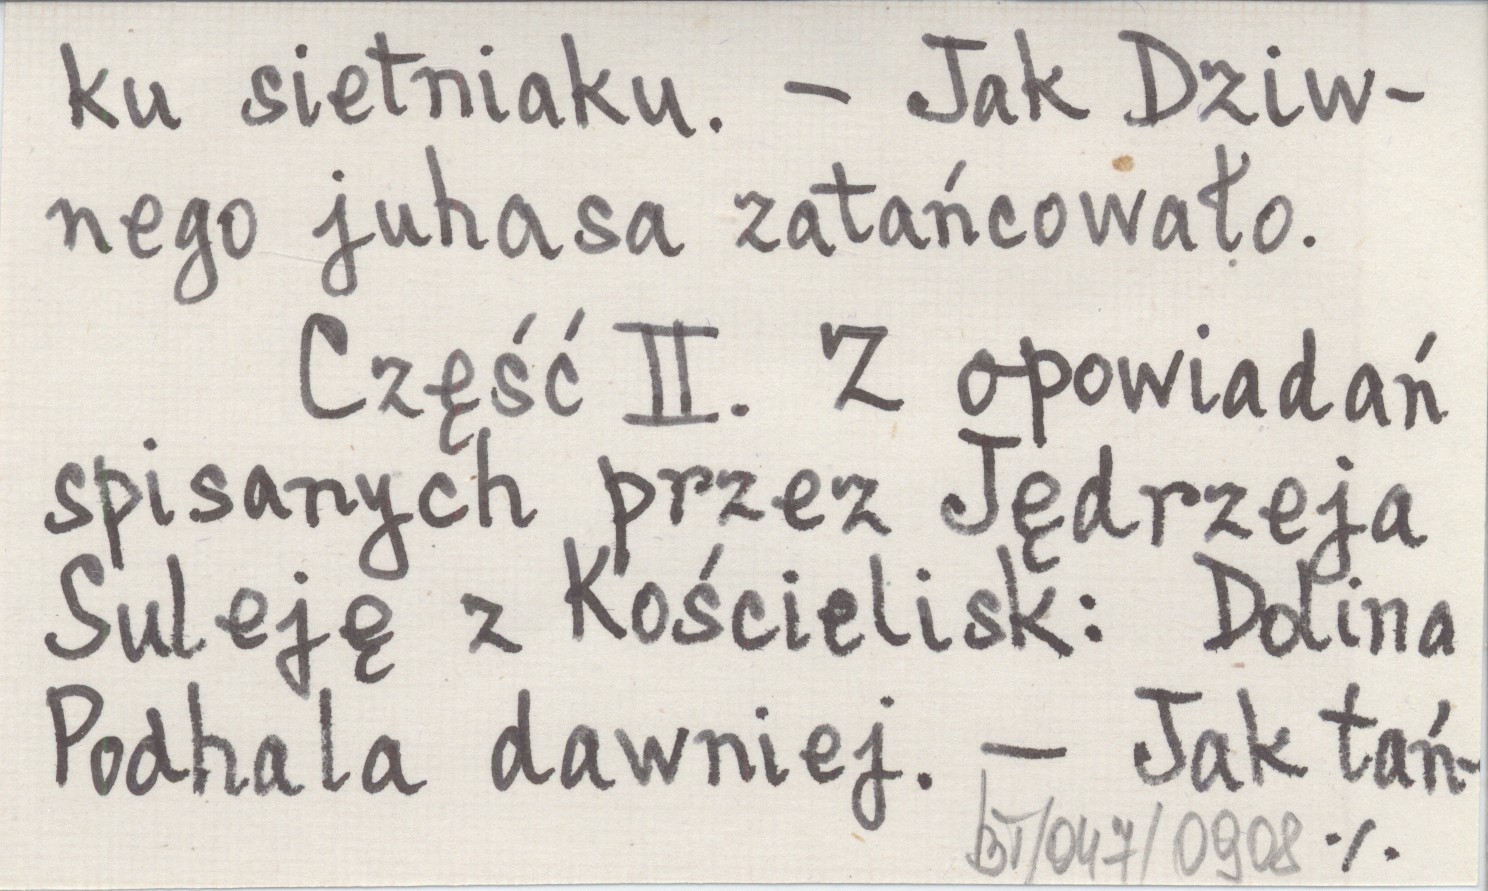 ku sietniaku. — Jak Dziw-
nego juhasa zatańcowało.
Część II. Z opowiadań
spisanych przez Jędrzeja
Suleję z Kościelisk: Dolina
Podhala dawniej. — Jak tań-
BT/047/0908 ./.